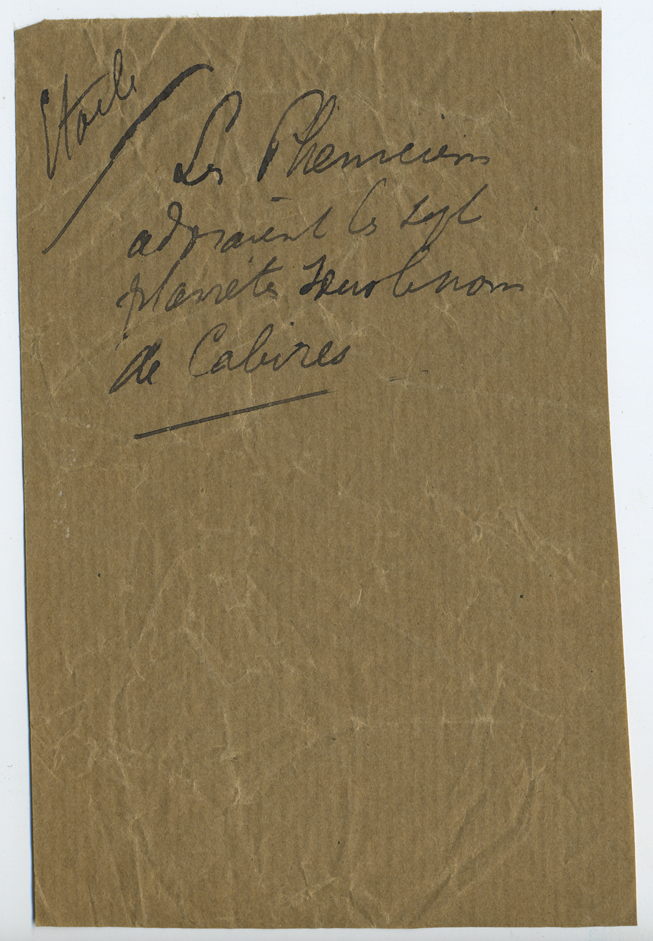 Etoile
Les Pheniciens
adoraient les sept
planètes sous le nom
de Cabires